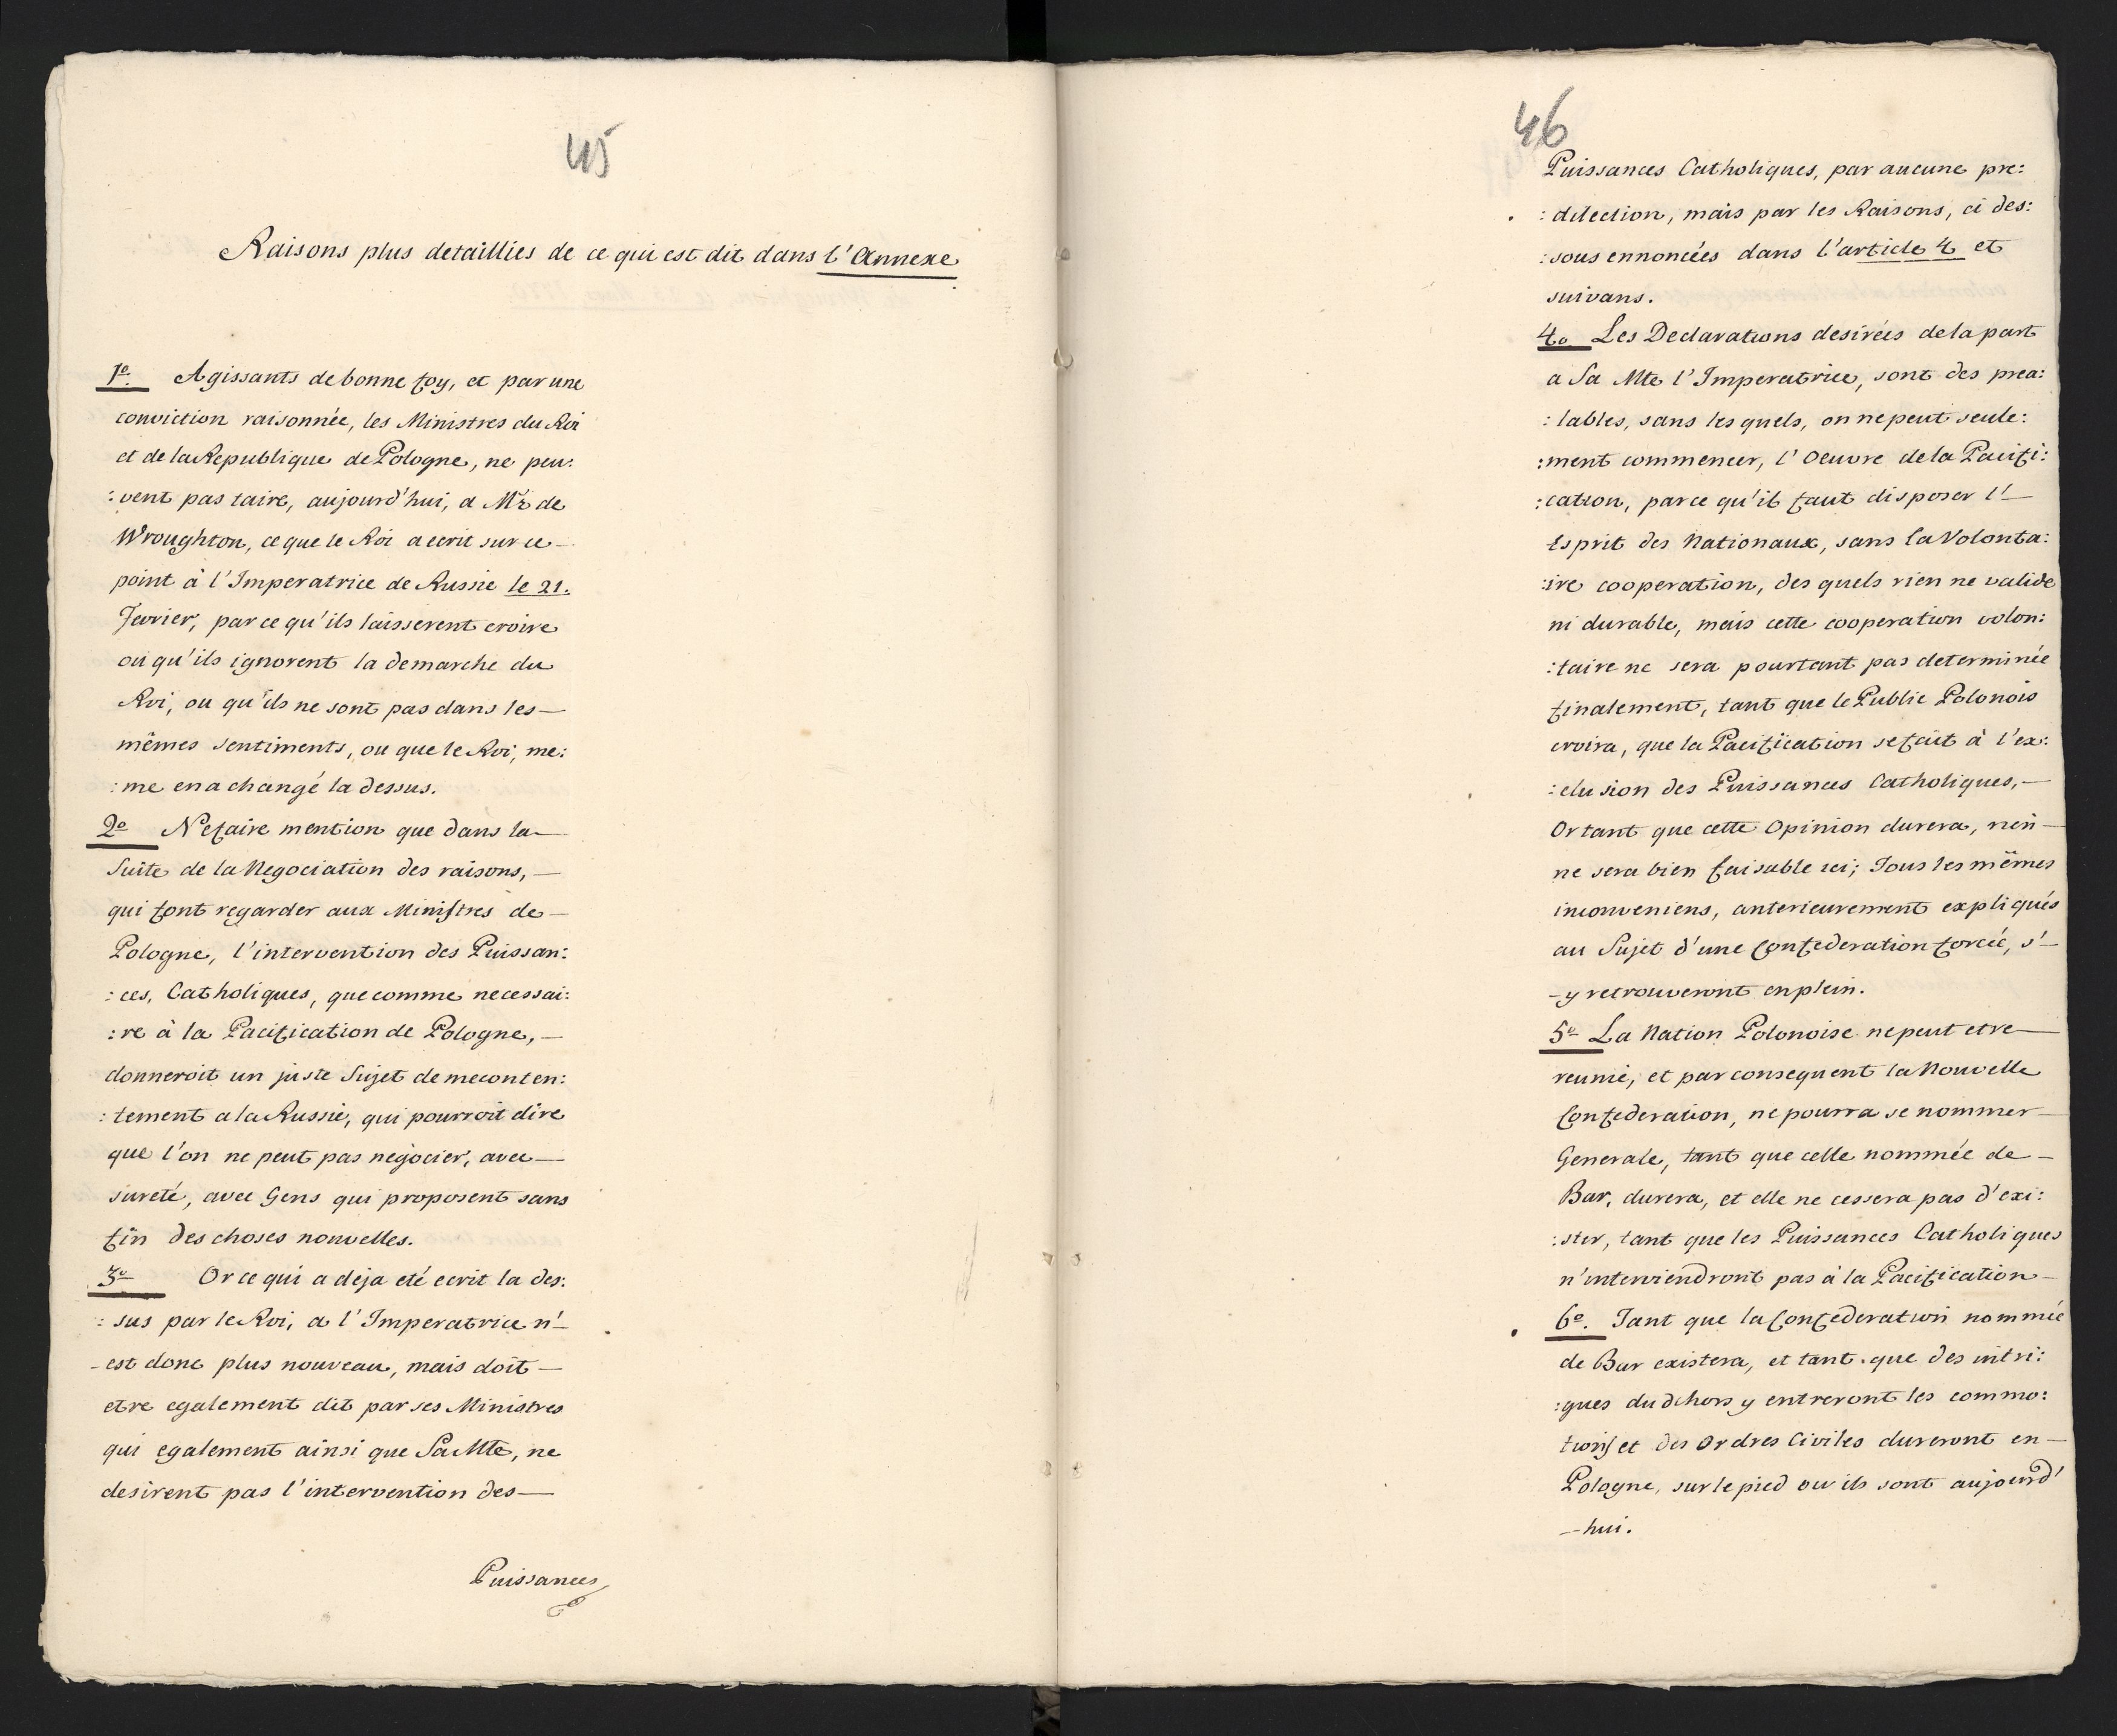 45
Raisons plus detaillies de ce qui est dit dans l'Annexe
1º. Agissants de bonne foy, et par une
conviction raisonnée, les Ministres du Roi
et de la Republique de Pologne, ne peu:
:vent pas taire, aujourd'hui, a Mr de
Wroughton, ce que le Roi a ecrit sur ce —
point à l'Imperatrice de Russie le 21.
Fevrier, par ce qu'ils laisserent croire
ou qu'ils ignorent la demarche du
Roi, ou qu'ils ne sont pas dans les —
mêmes sentiments, ou que le Roi, me:
:me en a changé la dessus.
2º Ne faire mention que dans la —
Suite de la Negociation des raisons, —
qui font regarder aux Ministres de —
Pologne, l'intervention des Puissan:
:ces, Catholiques, que comme necessai:
:re à la Pacification de Pologne, —
donneroit un juste Sujet de meconten:
:tement a la Russie, qui pourroit dire
que l'on ne peut pas negocier, avec —
sureté, avec Gens qui proposent sans
fin des choses nouvelles.
3º Or ce qui a deja eté ecrit la des:
:sus par le Roi, a l'Imperatrice n'—
-est donc plus nouveau, mais doit —
etre egalement dit par ses Ministres
qui egalement ainsi que Sa Mte, ne
desirent pas l'intervention des —
Puissances
46
Puissances Catholiques, par aucune pre:
:dilection, mais par les Raisons, ci des:
:sous ennoncées dans l'article 4 et
suivans.
4o Les Declarations desirées de la part
a Sa Mte l'Imperatrice, sont des prea:
:lables, sans les quels, on ne peut seule:
:ment commencer, l'Oeuvre de la Pacifi:
:cation, parce qu'il faut disposer l'—
Esprit des Nationaux, sans la Volonta:
:ire cooperation, des quels rien ne valide
ni durable, mais cette cooperation volon:
:taire ne sera pourtant pas determinée
finalement, tant que le Public Polonois
croira, que la Pacification se fait à l'ex:
:clusion des Puissances Catholiques, —
Or tant que cette Opinion durera, rien —
ne sera bien faisable ici; Tous les mêmes
inconveniens, anterieurement expliqués
au Sujet d'une Confederation forcée, s'—
-y retrouveront en plein.
5º La Nation Polonoise ne peut etre —
reunie, et par consequent la Nouvelle
Confederation, ne pourra se nommer —
Generale, tant que celle nommée de —
Bar, durera, et elle ne cessera pas d'exi:
:ster, tant que les Puissances Catholiques
n'interviendront pas à la Pacification —
6º. Tant que la Confederation nommée
de Bar existera, et tant que des intri:
:gues du dehors y entreront les commo:
tions et des Ordres Civiles dureront en —
Pologne, sur le pied ou ils sont aujourd'
— hui.